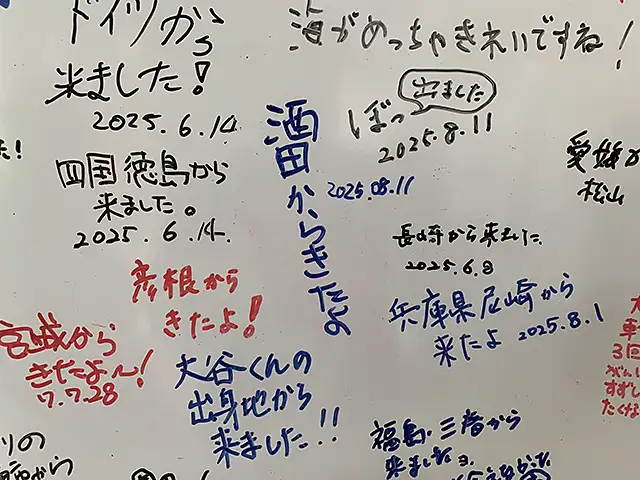 ドイツから
来ました!
2025.6.14
海がめっちゃきれいですね!
ぼっ
出ました
2025.8.11
た!
四国徳島から
来ました。
2025.6.14.
酒田からきたよ
2025.08.11
愛媛
松山
長崎から来ました
2025.6.8
彦根から
きたよ!
兵庫県尼崎から
来たよ 2025.8.1
宮城から
きたよ〜!
7.7.28
大谷くんの
出身地から
来ました!!
車
3回
すずし
たくな
福島・三春から
来ましたヨ
りの
から